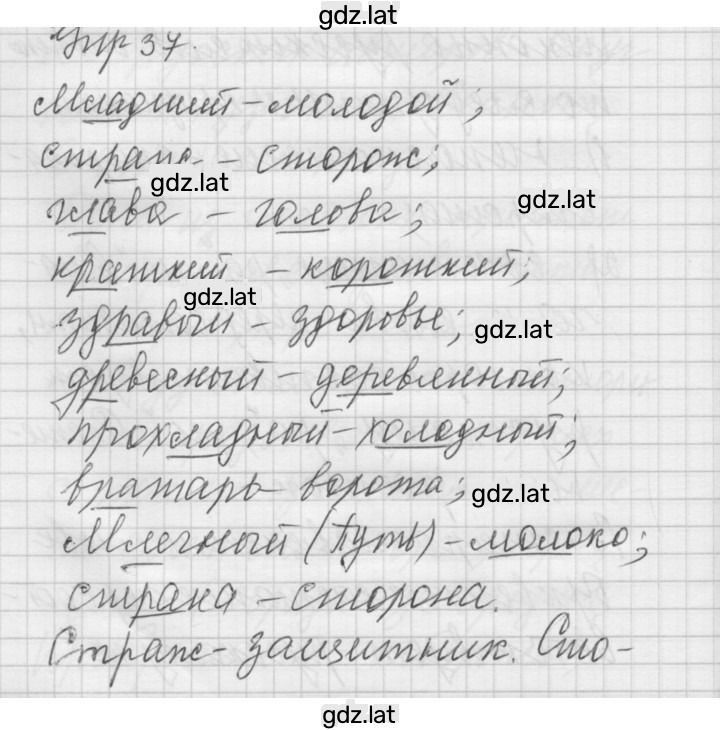 gdz.lat
Упр 37.
Младший - молодой;
страж - сторож;
gdz.lat
глава - голова;
gdz.lat
краткий - короткий;
gdz.lat
здравый - здоровье;
gdz.lat
древесный - деревянный;
прохладный - холодный;
вратарь - ворота;
gdz.lat
Млечный (Путь) - молоко;
страна - сторона.
Страж - защитник. Сто-
gdz.lat